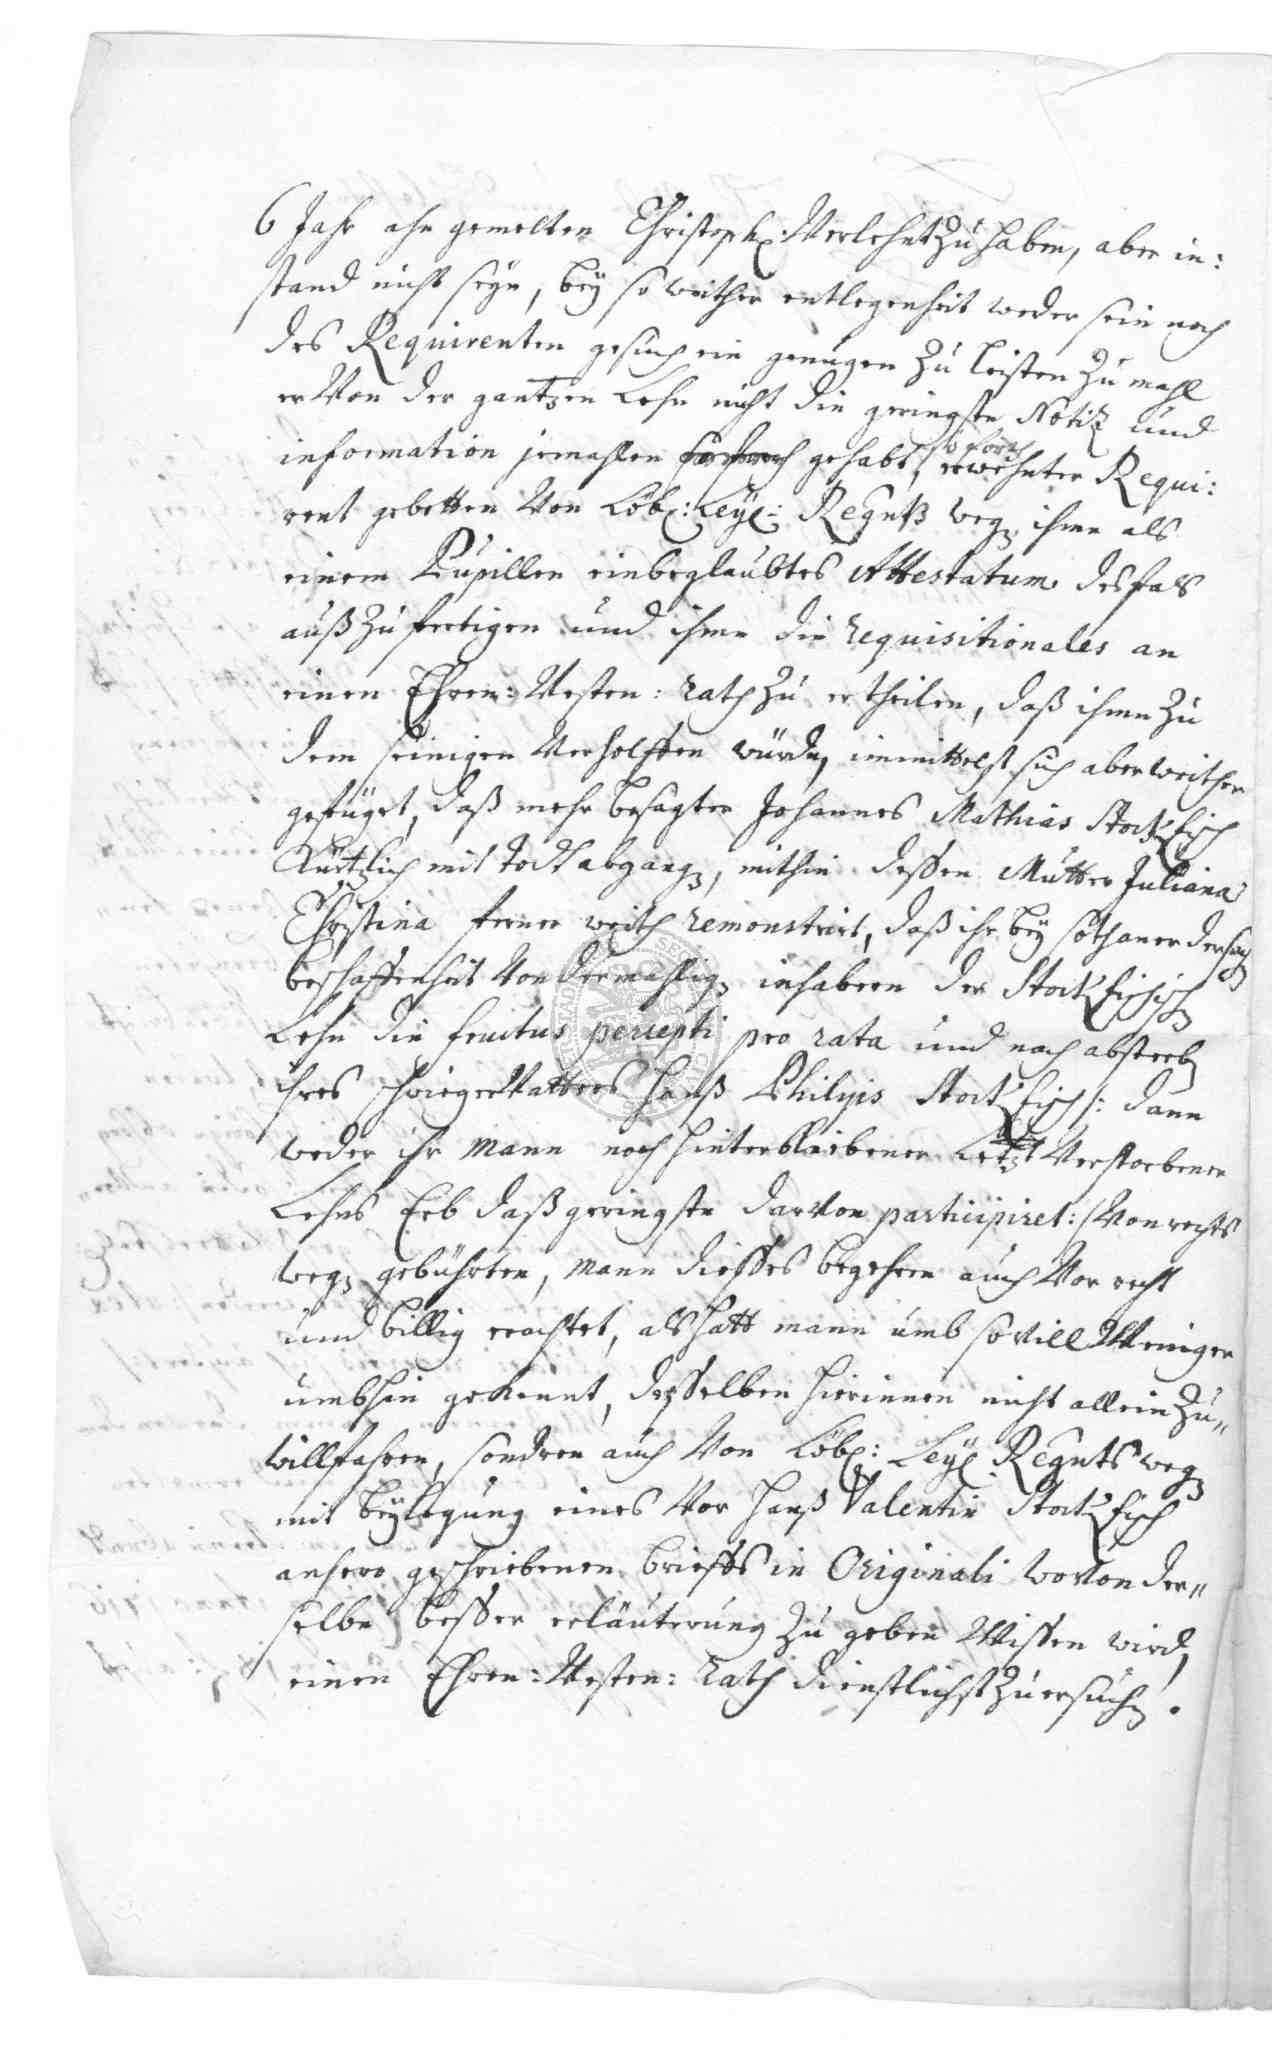 6 Jahr ahn gemelten Christoph: Verlehnt zu haben, aber in:
stand nicht seye, bey so weither entlegenheit weder sein noch
des Requirenten gesuch ein genügen zu leisten zumahl
er Von der gantzen Lehn nicht die geringste Notiz und
information jemahlen gehabt, so forth erwehnter Requi:
rent gebetten Von Löbl: Leyl: Regmts weg. ihme als
einem Pupillen ein beglaubtes Attestatum desfals
auß zu fertigen und ihme die requisitionales an
einen Ehren: Vesten: rath zu ertheilen, daß ihme zu
dem seinigen Verholffen würde, inmittelst sich aber weither
gefüget, daß mehr besagter Johannes Mathias Stockfisch
Kürtzlich mit todt abgang., mithin dessen Mutter Juliana
Christina ferner weith remonstrirt, daß ihr bey sothaner der sach
beschaffenheit Von dermahlig. inhabern der Stockfischisch.
Lehn die fructus percepti pro rata und nach absterb.
ihres schwieger Vatters Hanß Philips Stockfisch /: dann
weder ihr Mann noch hinterbliebener Letzt Verstorbener
Lehns Erb daß geringste darvon participiret :/ Von rechts
weg. gebührten, Mann diesses begehren auch Vor recht
und billig erachtet, als hatt mann umb so vill Weniger
umbhin gekennt, desselben hierinnen nicht allein zu„
willfahren, sondren auch Von Löbl: Leyl Regmts weg.
mit beylegung eines Vor Hanß Valentin Stockfisch
anhero geschriebenen brieffs in Originali wovon der„
selbe besser erläuterung zu geben Wissen wird,
einen Ehren: Vesten: rath dienstlichst zu ersuch..